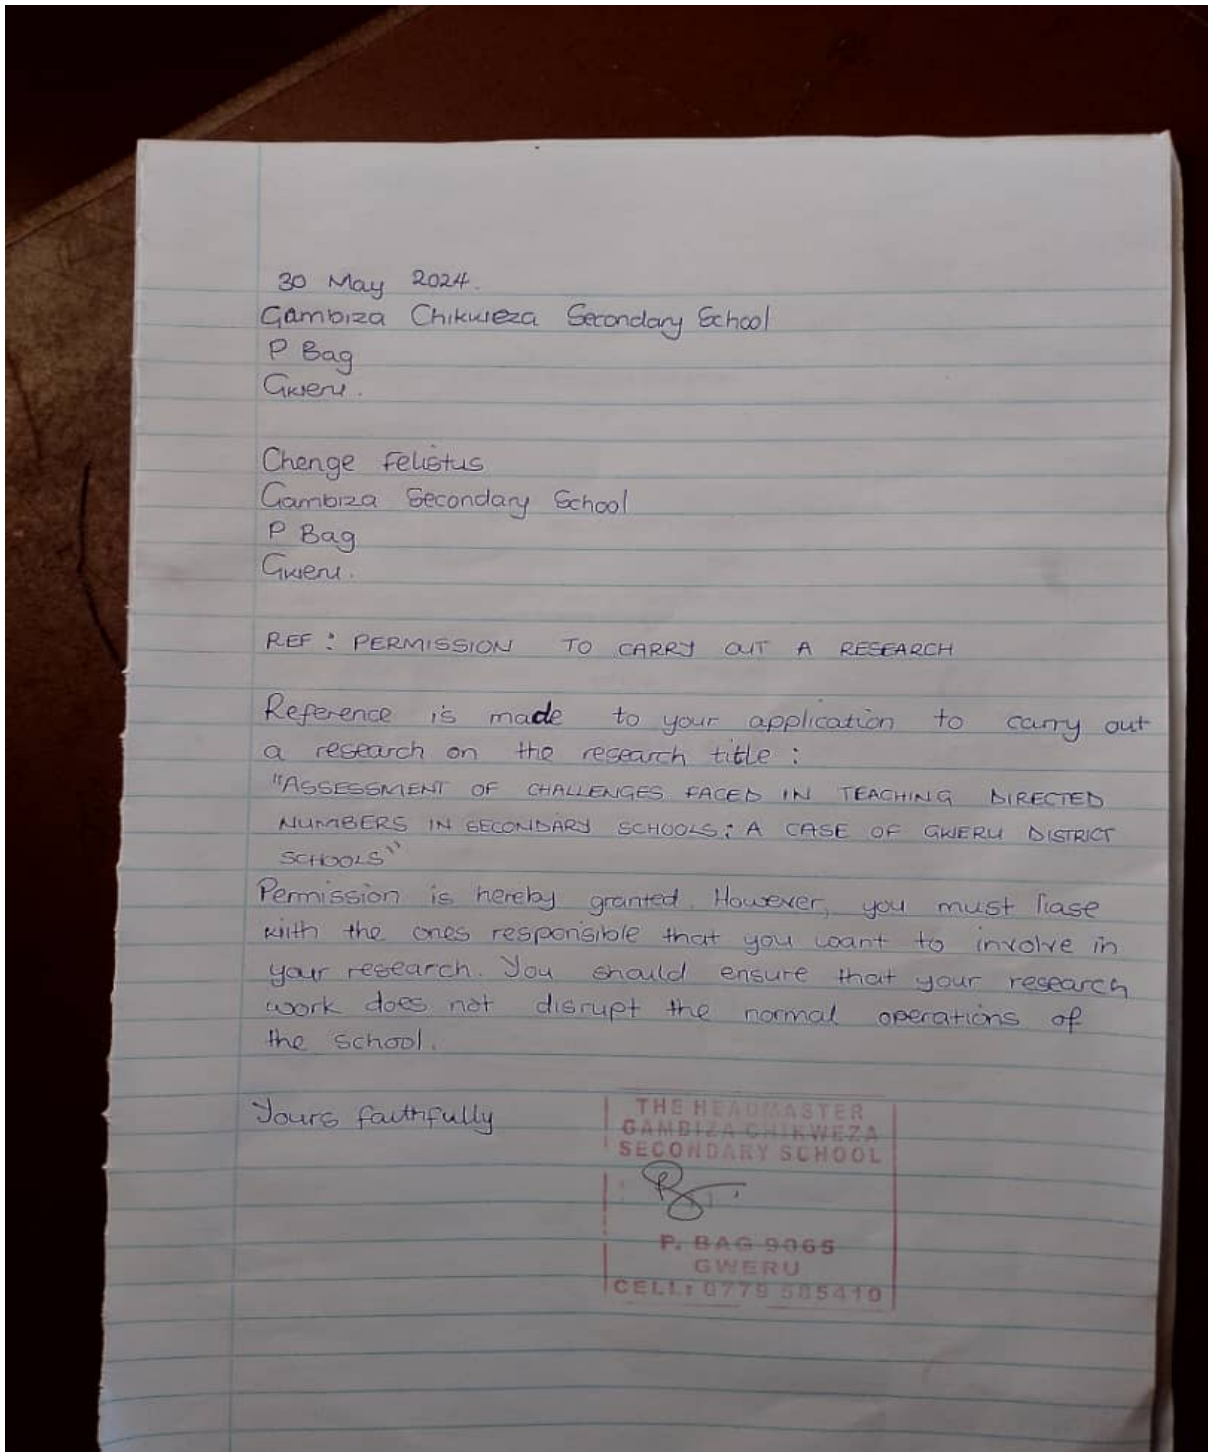 30 May 2024.
Gambiza Chikweza Secondary School
P Bag
Gweru.
Chenge Felistus
Gambiza Secondary School
P Bag
Gweru.
REF : PERMISSION TO CARRY OUT A RESEARCH
Reference is made to your application to carry out
a research on the research title :
"ASSESSMENT OF CHALLENGES FACED IN TEACHING DIRECTED
NUMBERS IN SECONDARY SCHOOLS: A CASE OF GWERU DISTRICT
SCHOOLS"
Permission is hereby granted. However, you must liase
with the ones responsible that you want to involve in
your research. You should ensure that your research
work does not disrupt the normal operations of
the school.
Yours faithfully
THE HEADMASTER
GAMBIZA CHIKWEZA
SECONDARY SCHOOL
P. BAG 9065
GWERU
CELL: 0779 585410